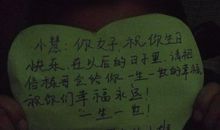 小慧：你好，祝你生日
快乐，在以后的日子里，请相
信栋哥会给你一生一世的幸福
祝你们幸福永远！
一生一世！